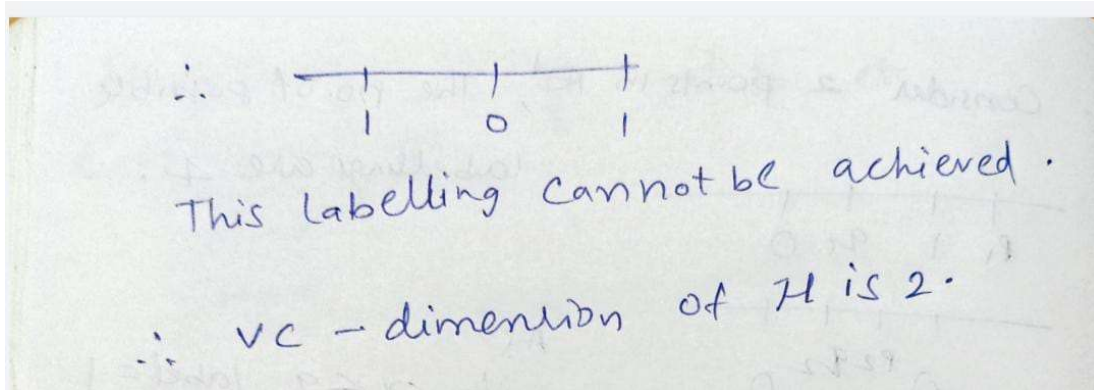 ∴
1 0 1
This labelling cannot be achieved.
∴ VC - dimension of H is 2.